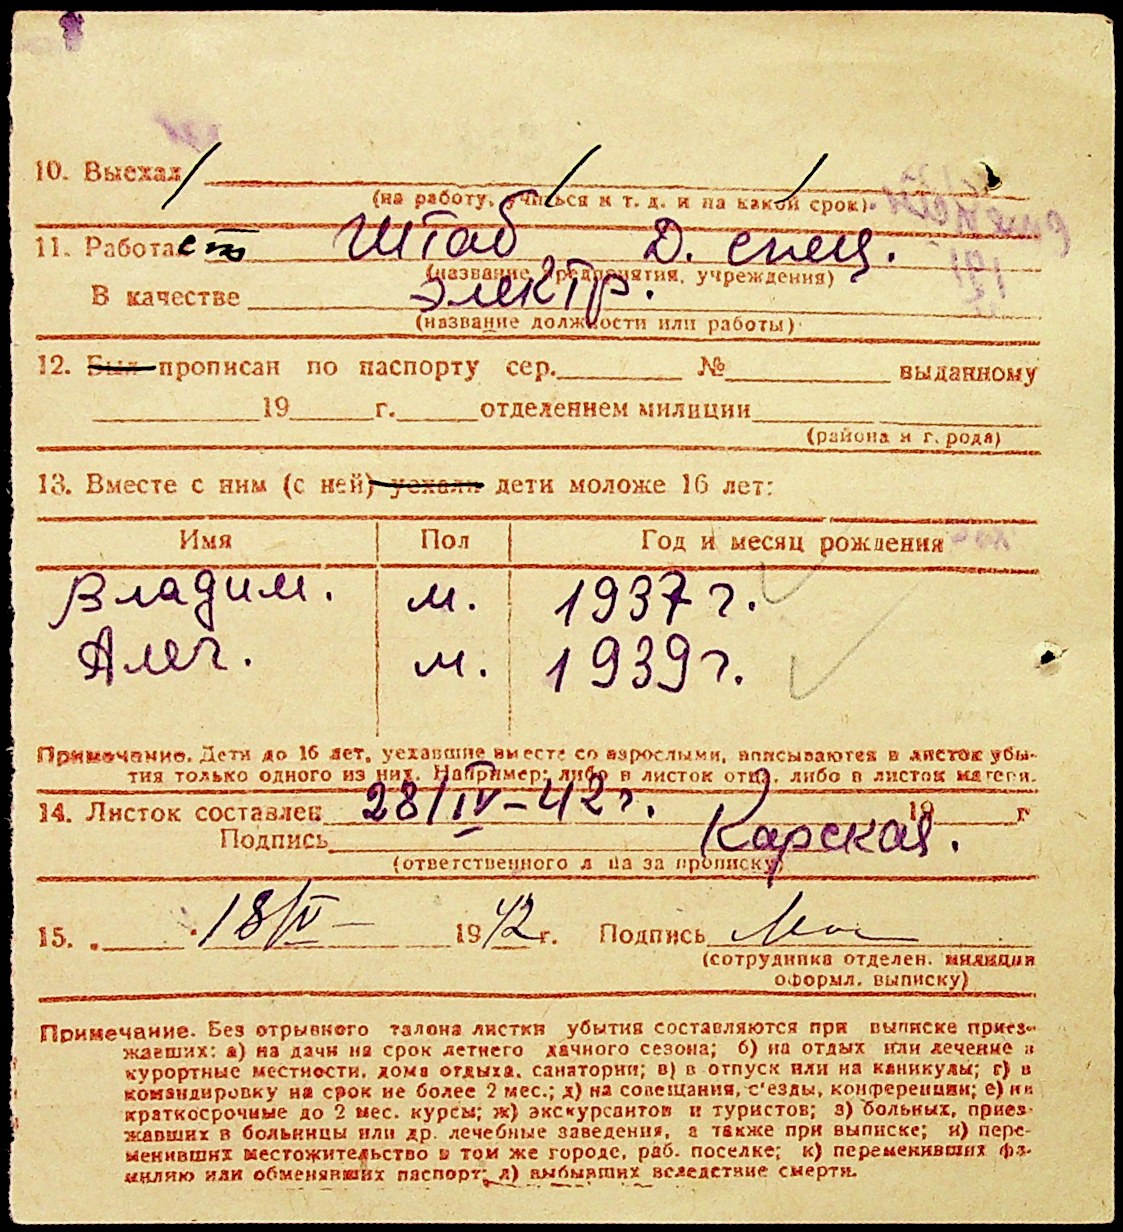 10. Выехал
(на работу, учиться и т. д. и на какой срок)
11. Работает Штаб Д. спец.
(название предприятия, учреждения)
В качестве электр.
(название должности или работы)
12. Был прописан по паспорту сер. № выданному
19 г. отделением милиции
(района и города)
13. Вместе с ним (с ней) уехали дети моложе 16 лет:
Имя Пол Год и месяц рождения
Владим. м. 1937 г.
м. 1939 г.
Примечание. Дети до 16 лет, уехавшие вместе со взрослыми, вписываются в листок убы-
тия только одного из них. Например: либо в листок отца, либо в листок матери.
14. Листок составлен 28/IV-42 г. 19 г
Подпись Карская.
(ответственного лица за прописку)
15. 18/V 1942 г. Подпись
(сотрудника отделен. милиции
оформл. выписку)
Примечание. Без отрывного талона листки убытия составляются при выписке приез-
жавших: а) на дачи на срок летнего дачного сезона; б) на отдых или лечение в
курортные местности, дома отдыха, санатории; в) в отпуск или на каникулы; г) в
командировку на срок не более 2 мес.; д) на совещания, с'езды, конференции; е) на
краткосрочные до 2 мес. курсы; ж) экскурсантов и туристов; з) больных, приез-
жавших в больницы или др. лечебные заведения, а также при выписке; и) пере-
менивших местожительство в том же городе, раб. поселке; к) переменивших фа-
милию или обменявших паспорт; л) выбывших вследствие смерти.